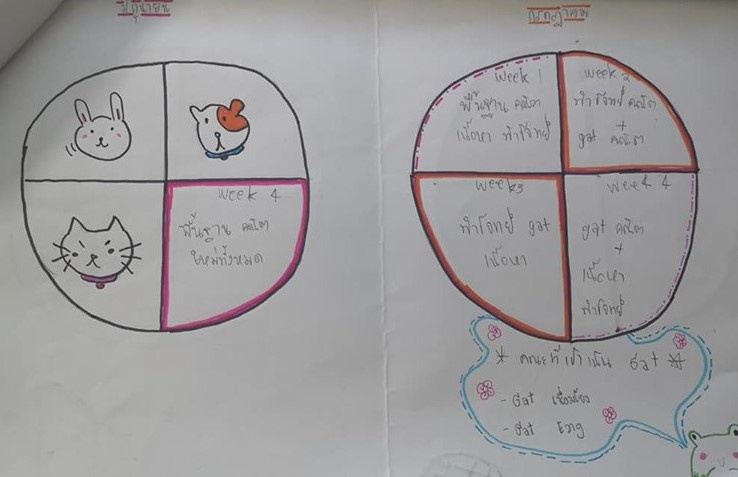 มิถุนายน
week 4
พื้นฐาน คณิต
ใหม่ทั้งหมด
กรกฎาคม
week 1
พื้นฐาน คณิต
เนื้อหา ทำโจทย์
week 2
ทำโจทย์ คณิต
+
gat คณิต
week3
ทำโจทย์ gat
เนื้อหา
week 4
gat คณิต
+
เนื้อหา
ทำโจทย์
* คณะที่เข้าเน้น Gat *
- Gat เชื่อมโยง
- Gat Eng